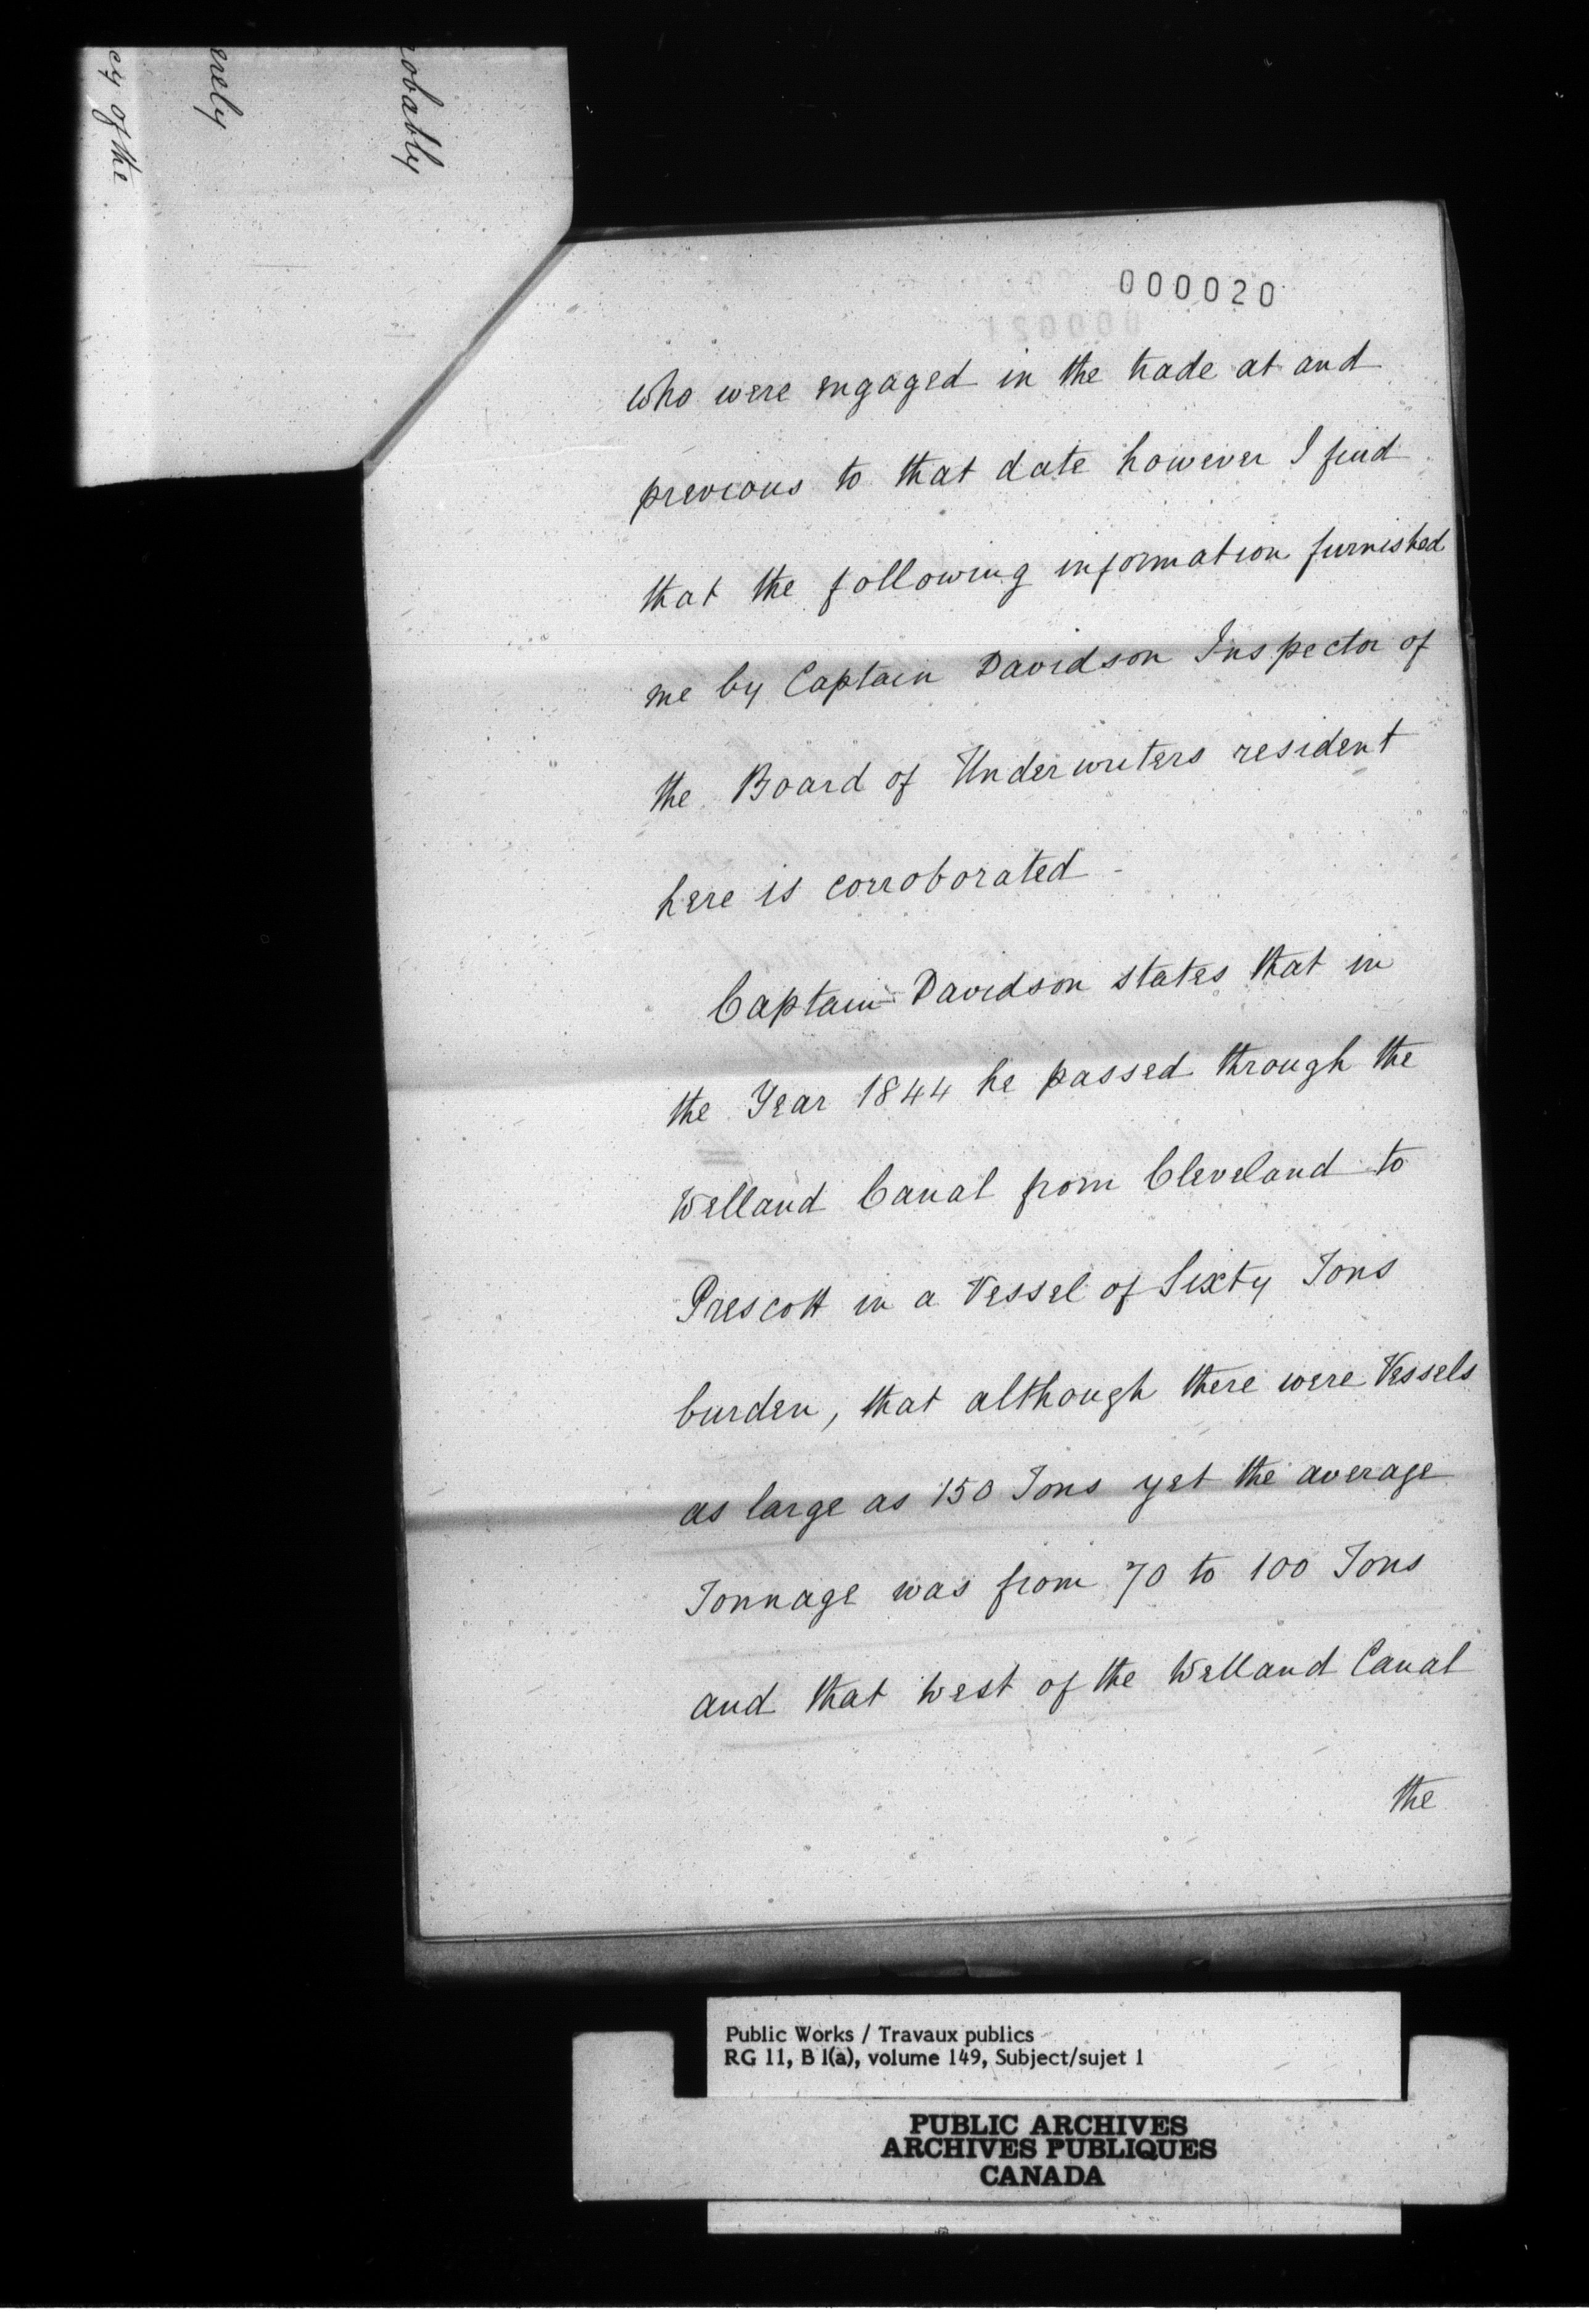 robably
erely
cy of the
000020
who were engaged in the trade at and
previous to that date however I find
that the following information furnished
me by Captain Davidson Inspector of
the Board of Underwriters resident
here is corroborated -
Captain Davidson states that in
the Year 1844 he passed through the
Welland Canal from Cleveland to
Prescott in a Vessel of Sixty Tons
burden, that although there were Vessels
as large as 150 Tons yet the average
Tonnage was from 70 to 100 Tons
and that West of the Welland Canal
the
Public Works / Travaux publics
RG 11, B 1(a), volume 149, Subject/sujet 1
PUBLIC ARCHIVES
ARCHIVES PUBLIQUES
CANADA